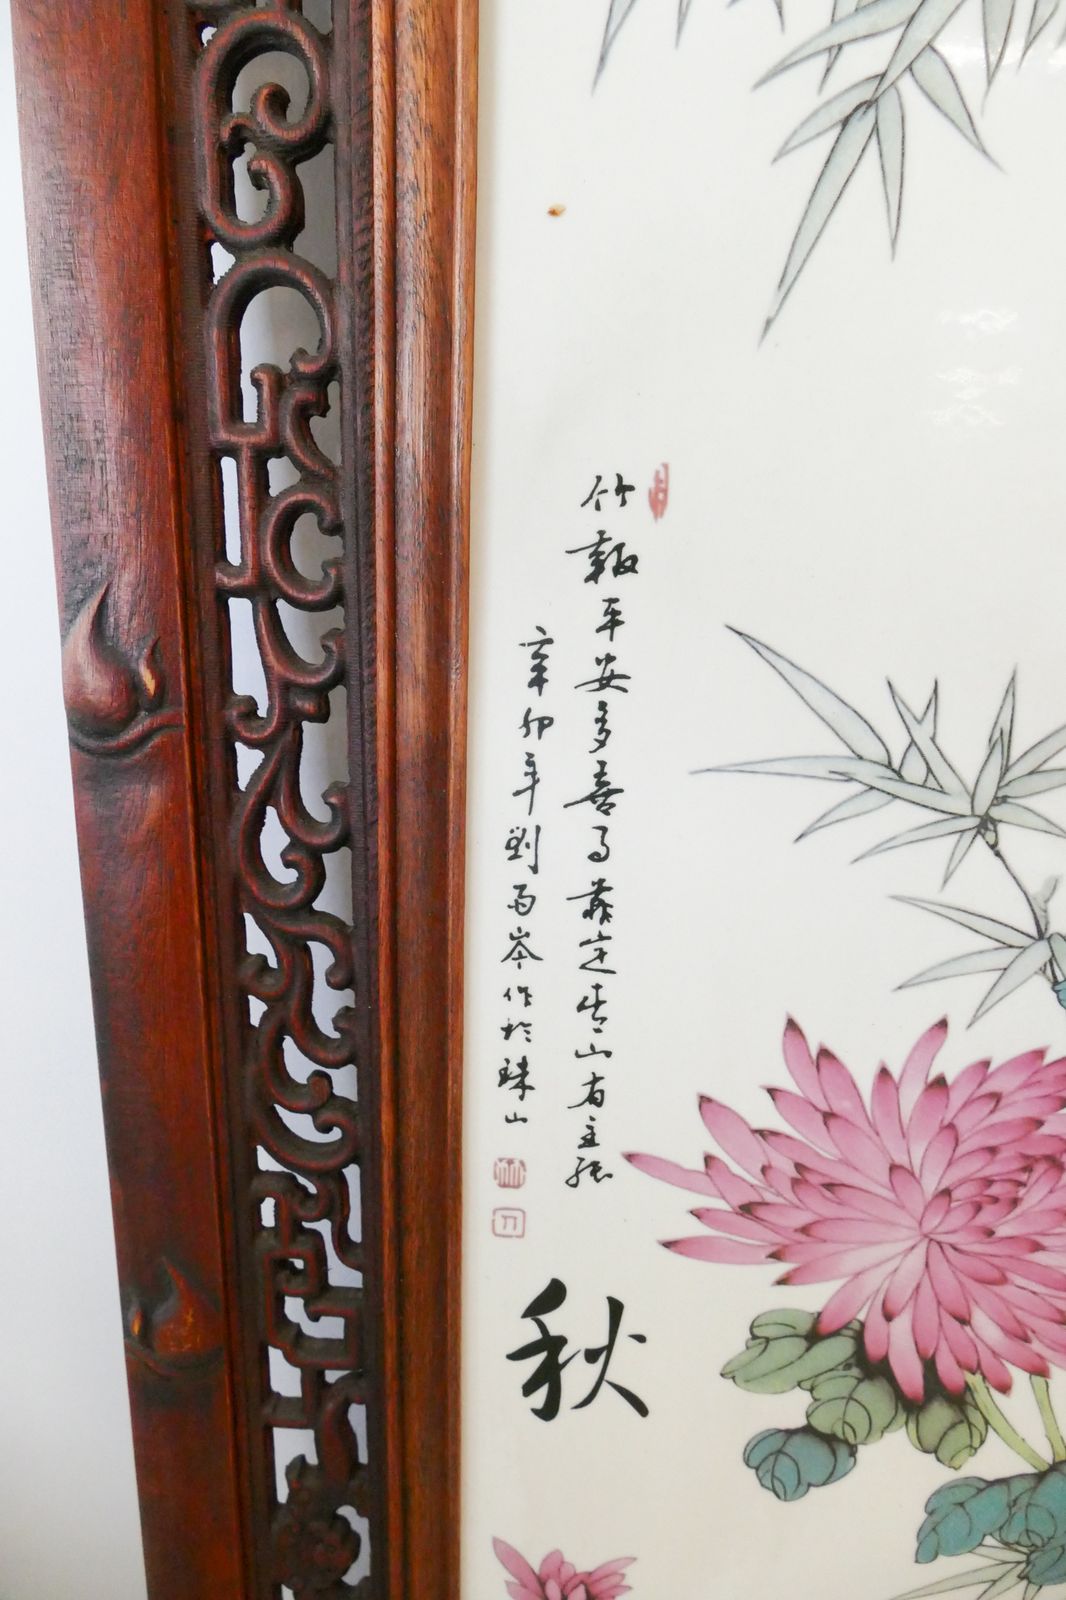 竹報平安多喜事
花定青山有主張
辛卯年劉雨岑作於珠山
秋